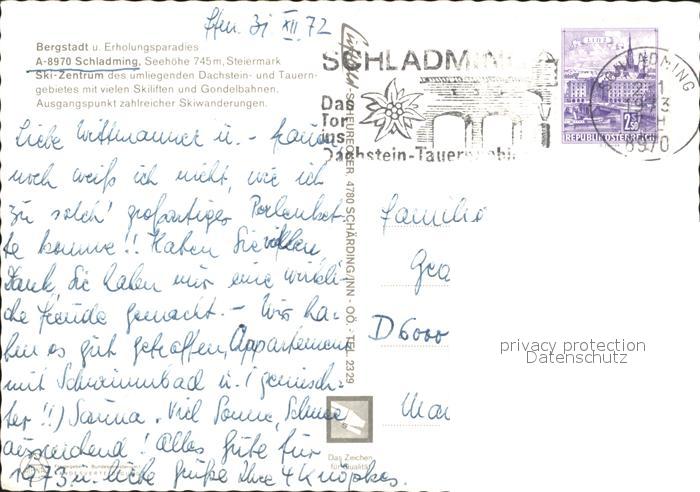 31 XII 72
Bergstadt u. Erholungsparadies
A-8970 Schladming, Seehöhe 745 m, Steiermark
Ski-Zentrum des umliegenden Dachstein- und Tauern-
gebietes mit vielen Skiliften und Gondelbahnen.
Ausgangspunkt zahlreicher Skiwanderungen.
SCHLADMING
Das
Tor
ins
Dachstein-Tauern
LINZ
2S
REPUBLIK ÖSTERREICH
SCHLADMING
1973
8970
4780 SCHÄRDING/INN - OÖ. - TEL. 2329
Liebe Wittmanner u. -
noch weiß ich nicht, wie ich
zu solch' großartiger Perlenket-
te komme!! Haben Sie vielen
Dank Sie haben mir eine wirkli-
che Freude gemacht. - Wir ha-
ben es gut getroffen, Appartement
mit Schwimmbad u. (gemisch-
ter!!) Sauna. Viel Sonne, Schnee
ausreichend! Alles Gute für
1973 u. liebe Grüße Ihre 4 Knöpkes.
Familie
D 6000
privacy protection
Datenschutz
Das Zeichen
für Qualität